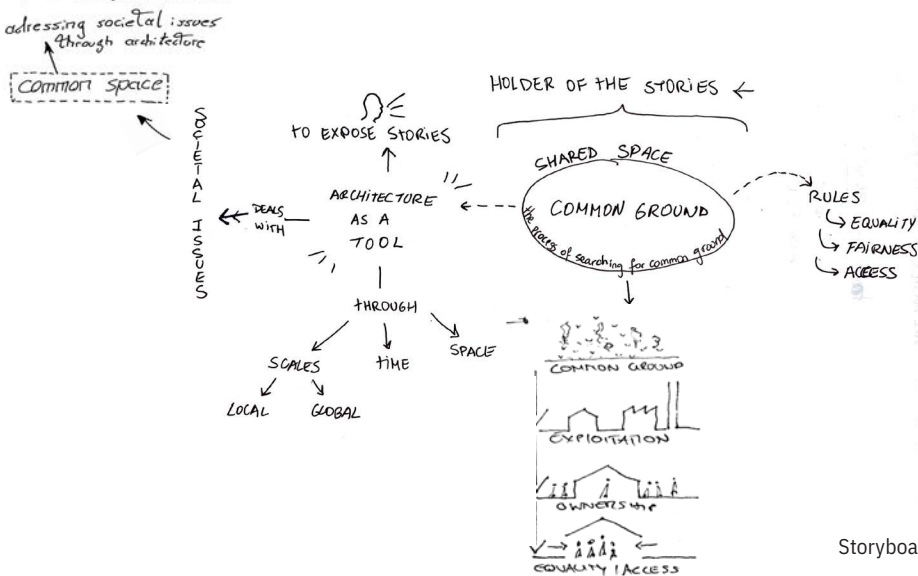 adressing societal issues
through architecture
common space
SOCIETAL ISSUES
DEALS
WITH
TO EXPOSE STORIES
ARCHITECTURE
AS A
TOOL
THROUGH
SCALES
TIME
SPACE
LOCAL
GLOBAL
HOLDER OF THE STORIES
SHARED SPACE
COMMON GROUND
the process of searching for common ground
RULES
EQUALITY
FAIRNESS
ACCESS
COMMON GROUND
EXPLOITATION
OWNERSHIP
EQUALITY | ACCESS
Storyboa